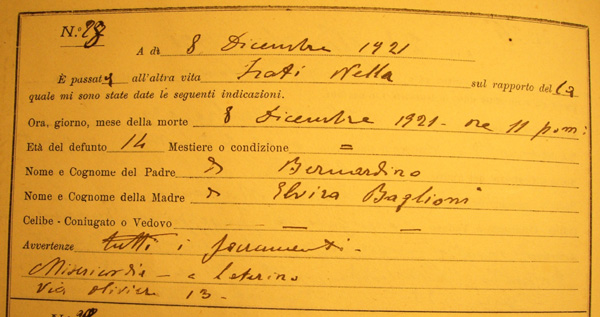 N.º 28
A dì 8 Dicembre 1921
È passata all'altra vita Frati Nella sul rapporto del la
quale mi sono state date le seguenti indicazioni.
Ora, giorno, mese della morte 8 Dicembre 1921 - ore 11 pom:
Età del defunto 14 Mestiere o condizione =
Nome e Cognome del Padre di Bernardino
Nome e Cognome della Madre di Elvira Baglioni
Celibe - Coniugato o Vedovo — —
Avvertenze tutti i sacramenti -
Misericordia - a Laterino
Via 13 -